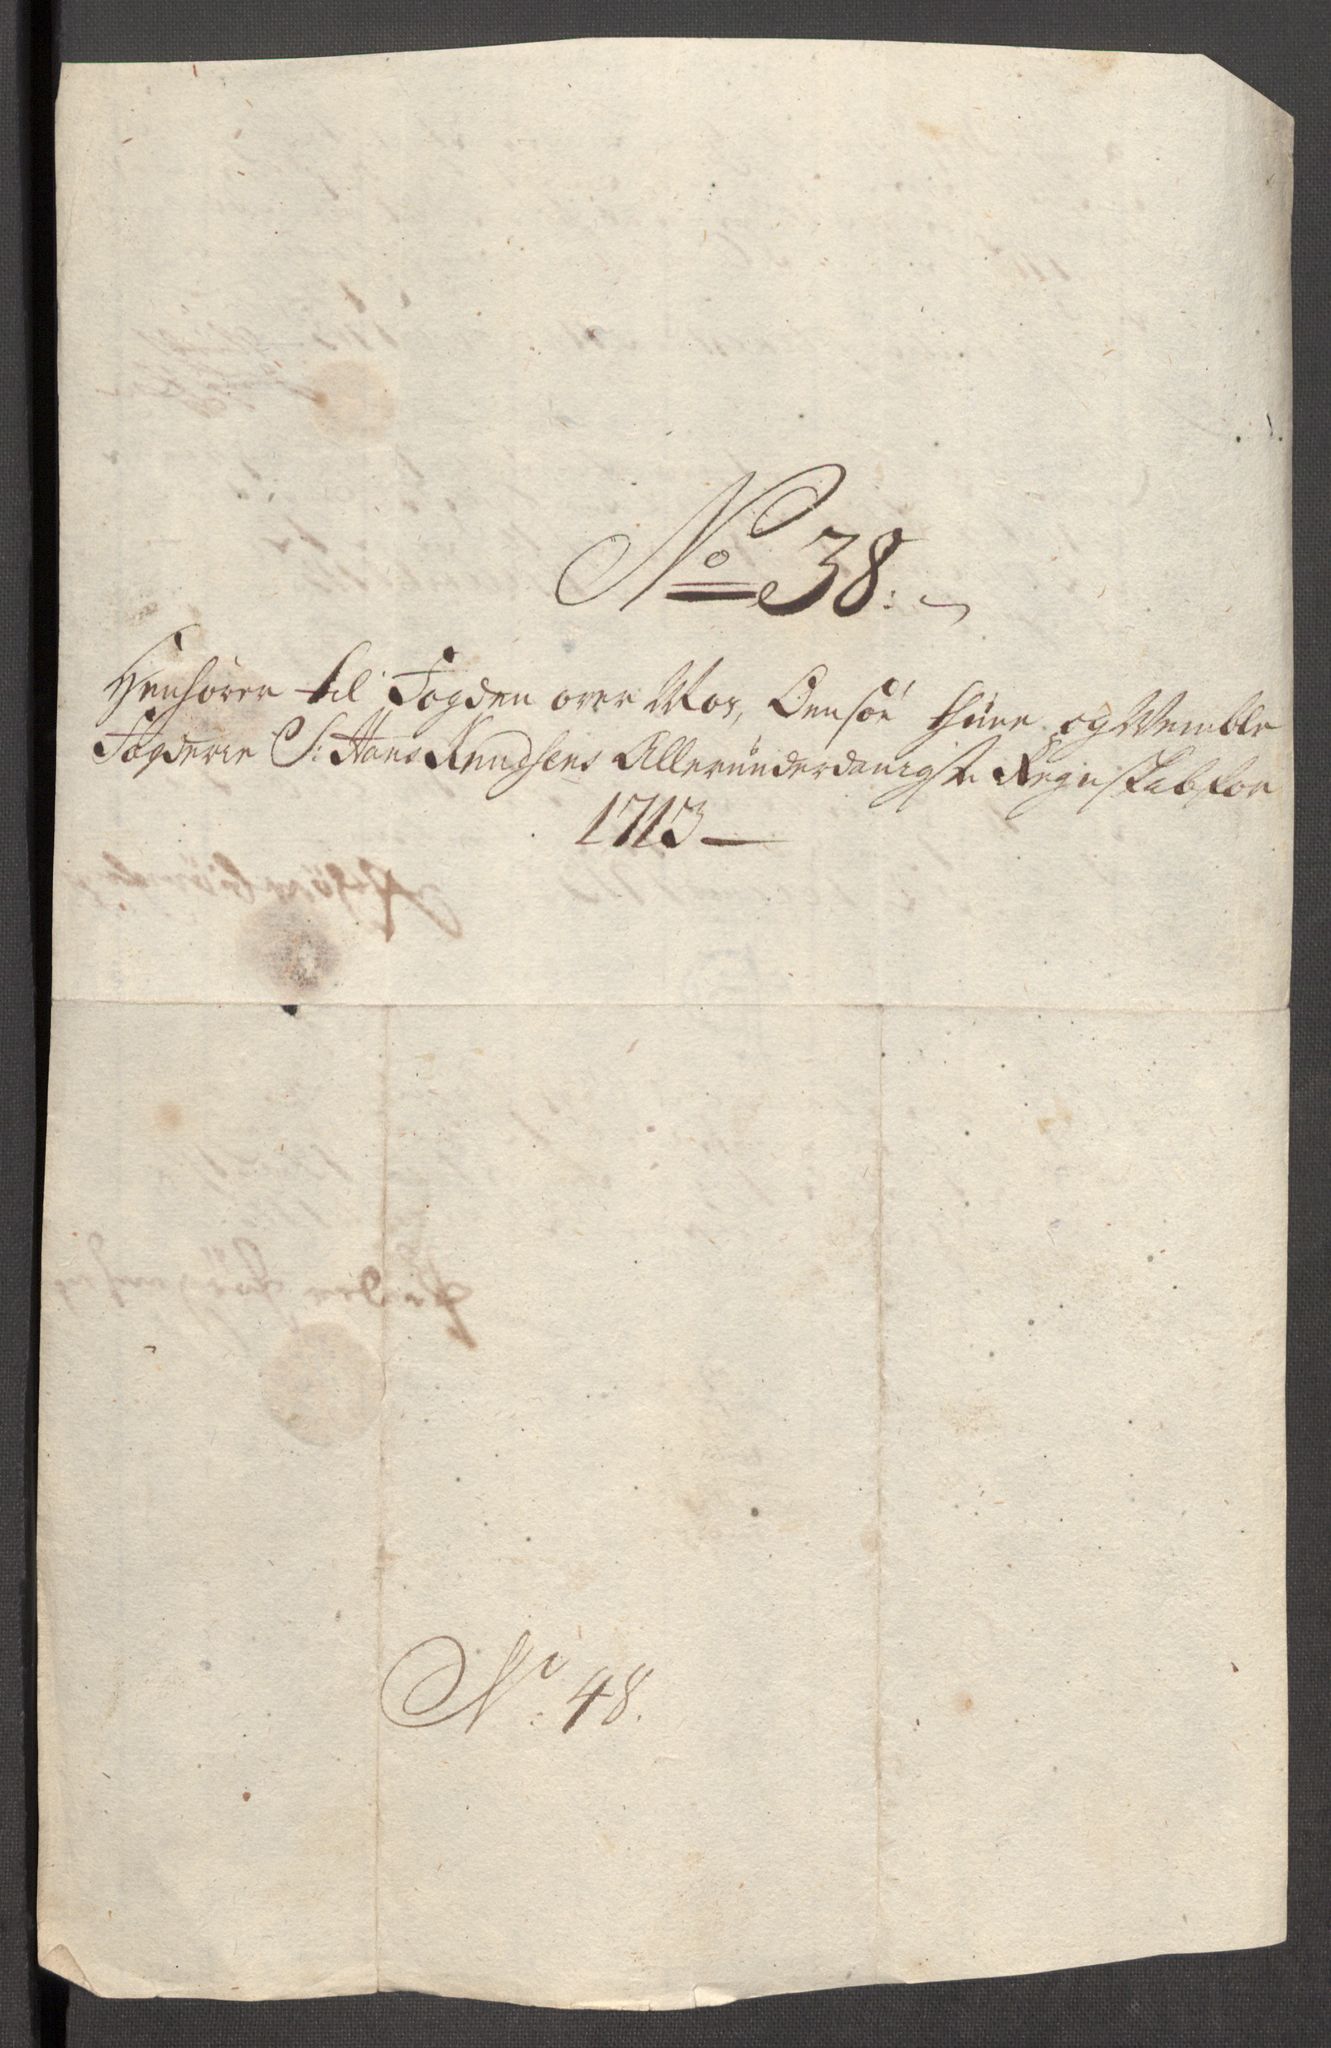 No 38.
Henhører til Fogden over Mos, Onsøe, Thune og Wemble
Fogderie Sr. Hans Knudsens Alleründerdanigste Regnskab for
1713
No. 48.